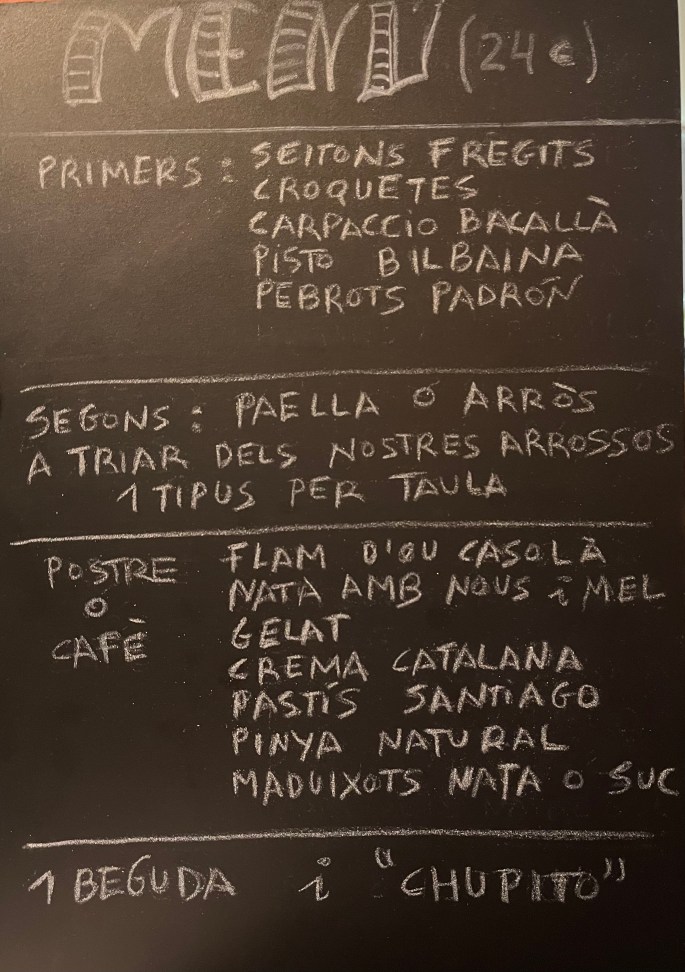 MENÚ (24€)
PRIMERS: SEITONS FREGITS
CROQUETES
CARPACCIO BACALLÀ
PISTO BILBAINA
PEBROTS PADRÓN
SEGONS: PAELLA O ARRÒS
A TRIAR DELS NOSTRES ARROSSOS
1 TIPUS PER TAULA
POSTRE O CAFÈ
FLAM D'OU CASOLÀ
NATA AMB NOUS i MEL
GELAT
CREMA CATALANA
PASTÍS SANTIAGO
PINYA NATURAL
MADUIXOTS NATA O SUC
1 BEGUDA i "CHUPITO"